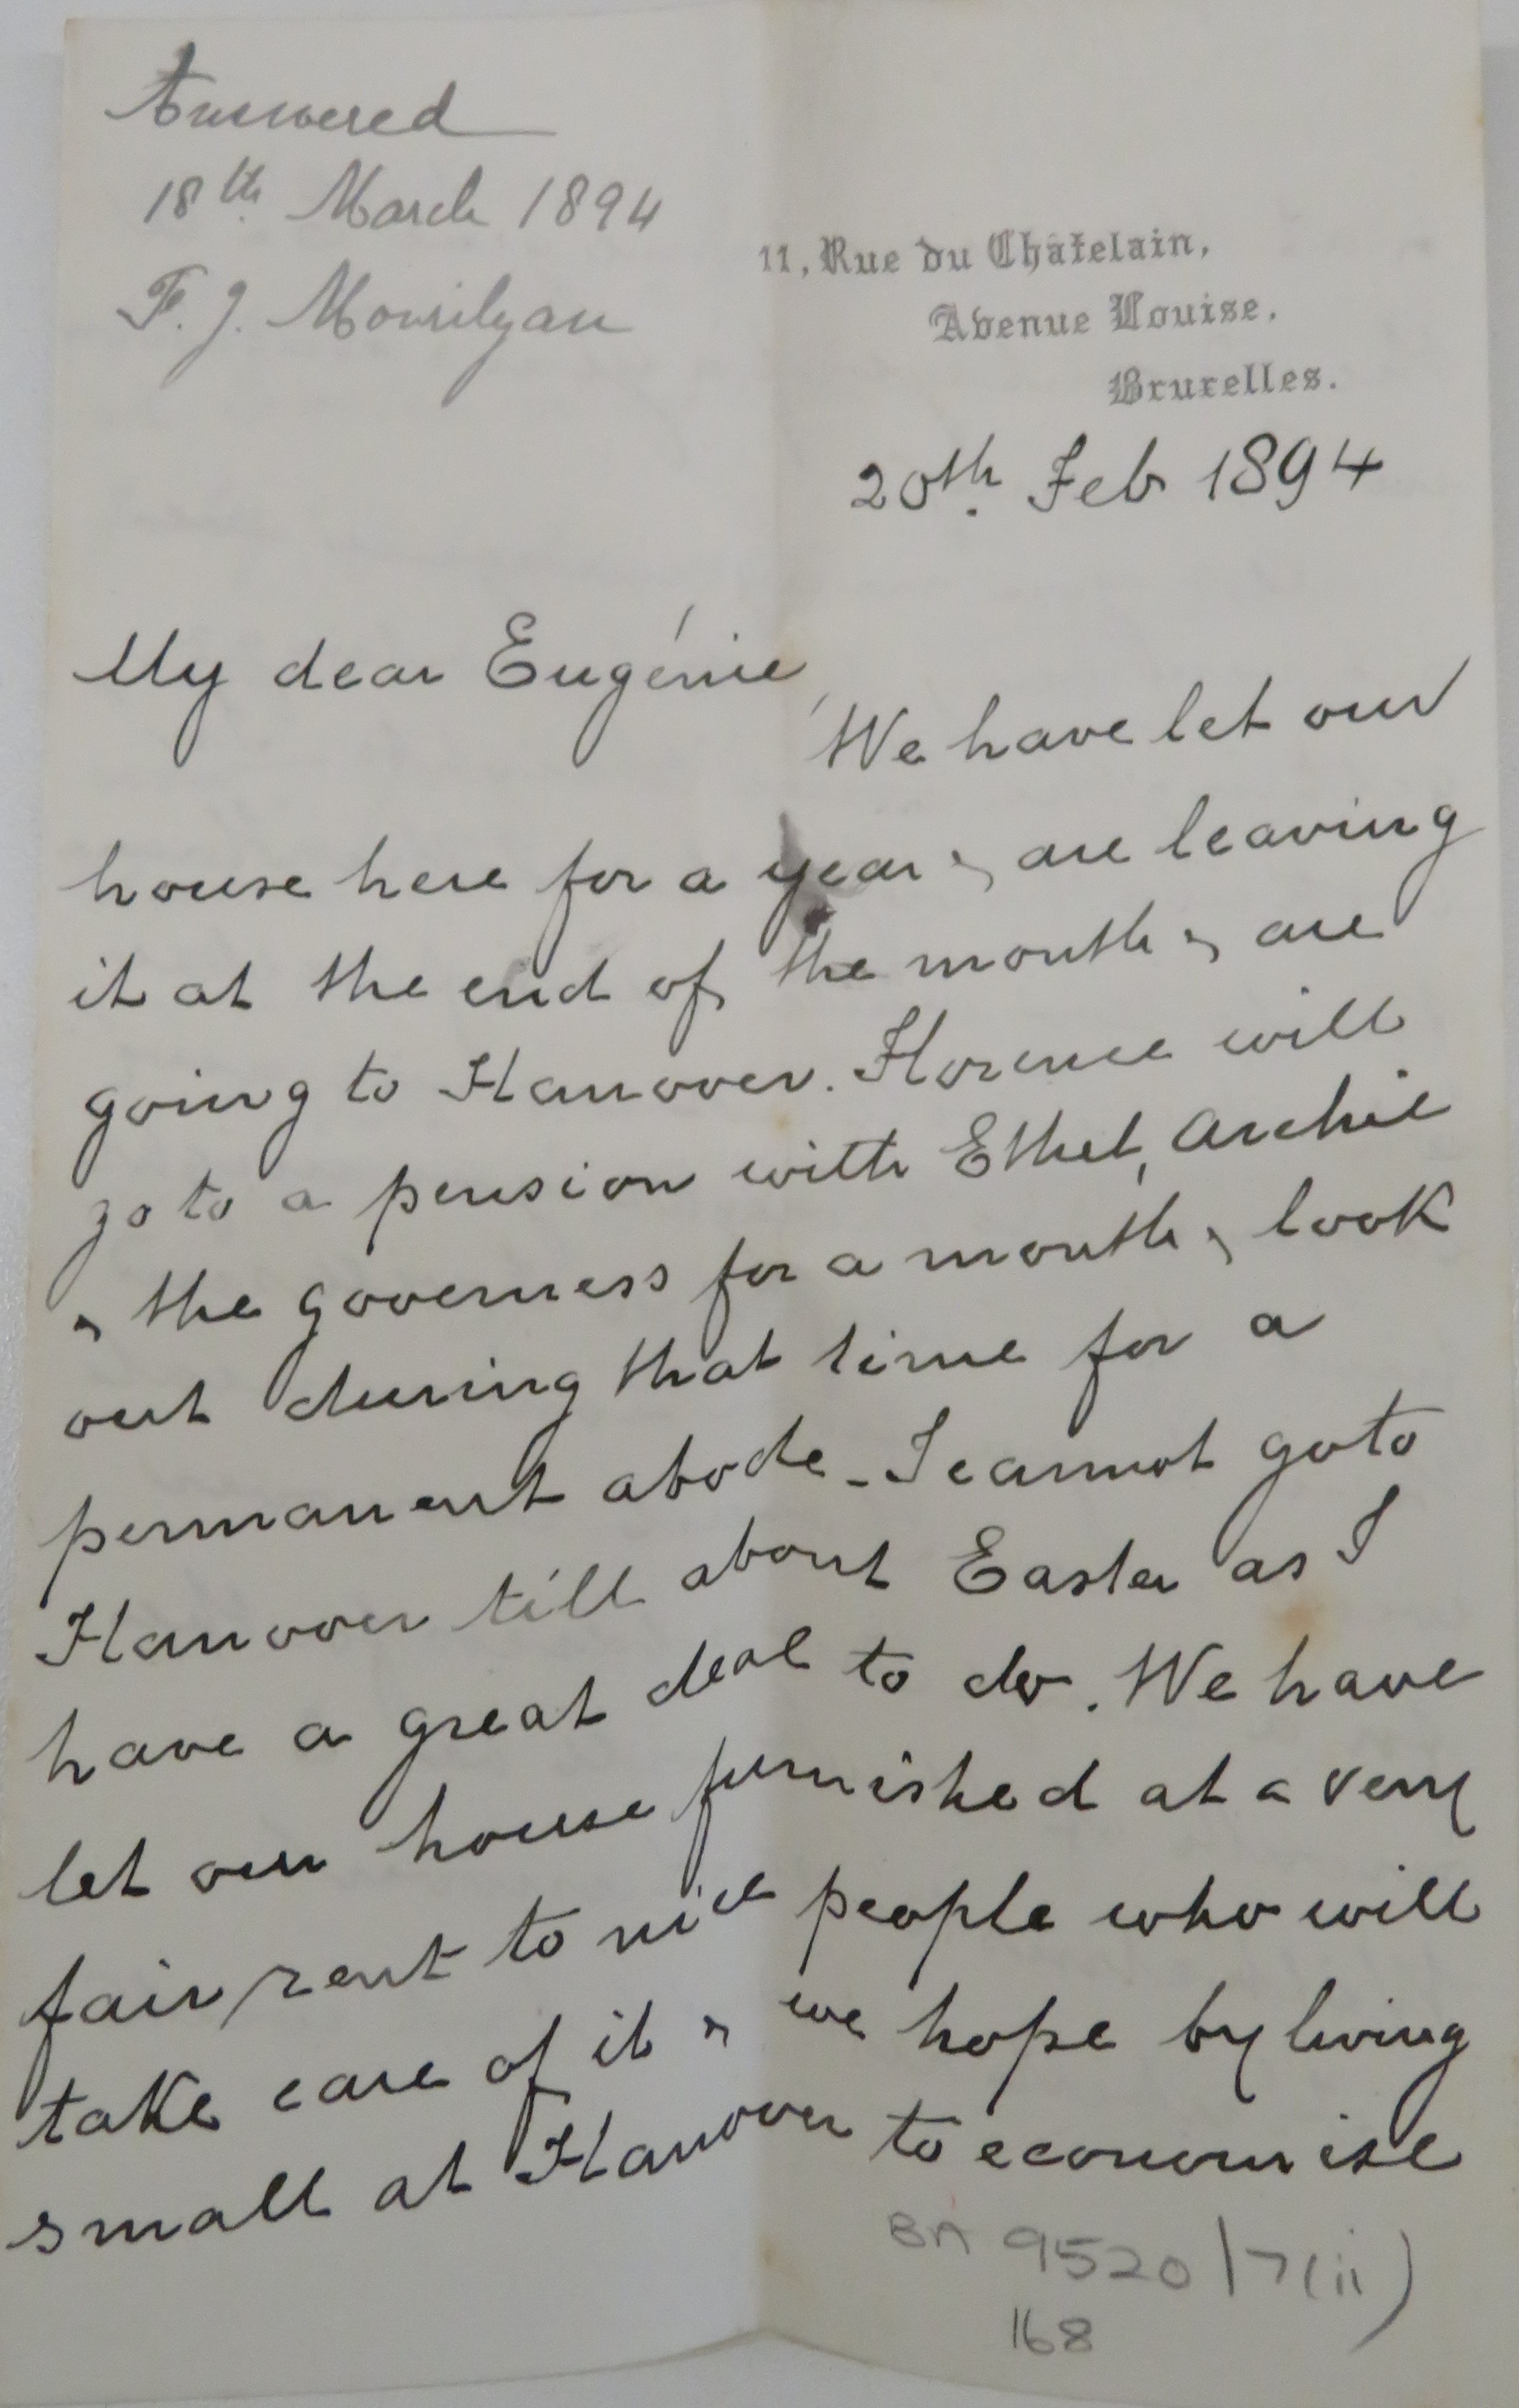 Answered
18th March 1894
F. J. Mourilyan
11, Rue du Châtelain,
Avenue Louise.
Bruxelles.
20th. Feb 1894
My dear Eugénie,
We have let our
house here for a year & are leaving
it at the end of the month & are
going to Hanover. Florence will
go to a pension with Ethel, Archie
& the governess for a month & look
out during that time for a
permanent abode - I cannot go to
Hanover till about Easter as I
have a great deal to do. We have
let our house furnished at a very
fair rent to nice people who will
take care of it & we hope by living
small at Hanover to economise
BA 9520/7(ii)
168